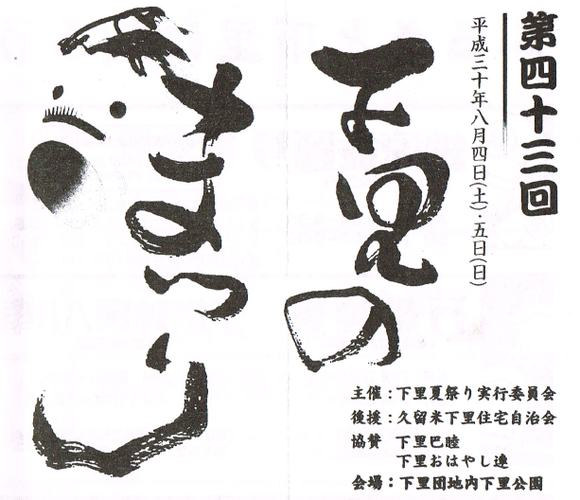 第四十三回
平成三十年八月四日(土)・五日(日)
下里の
さまつり
主催：下里夏祭り実行委員会
後援：久留米下里住宅自治会
協賛　下里巴睦
下里おはやし連
会場：下里団地内下里公園